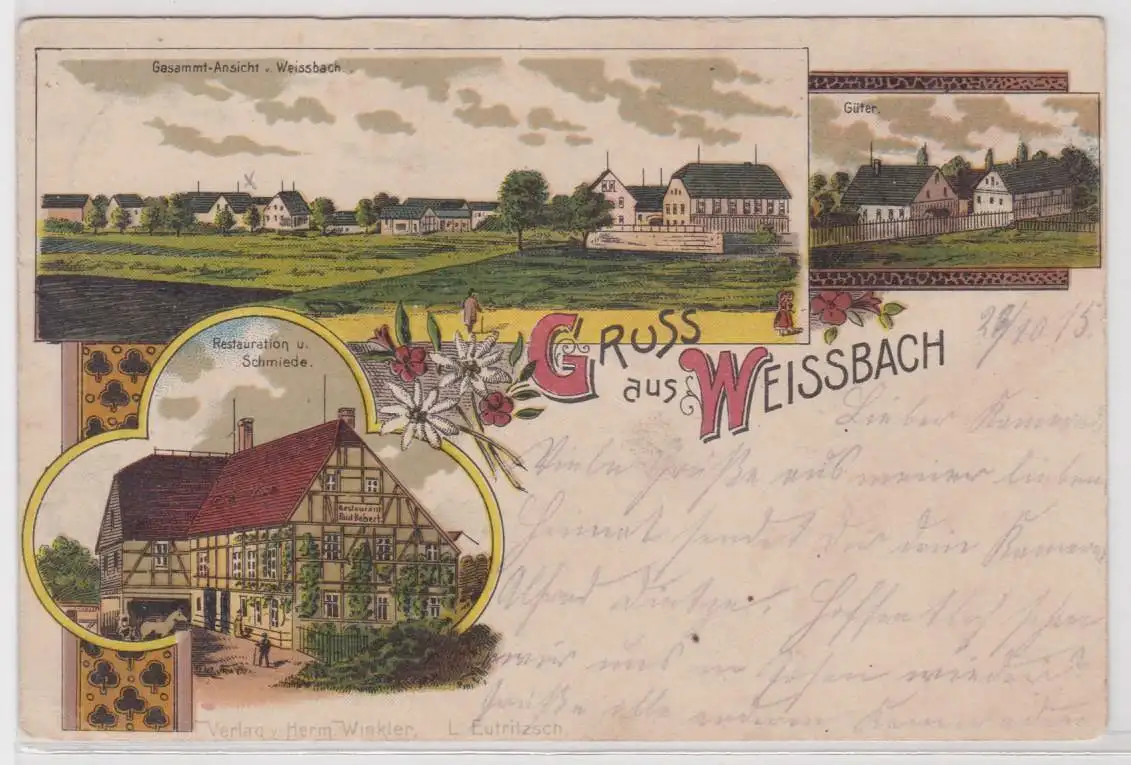 Gesammt-Ansicht v. Weissbach.
Güter.
Restauration u.
Schmiede.
Restaurant
Paul Bebert
GRUSS
aus WEISSBACH
Lieber
Viele Grüße aus meiner lieben
Heimat sendet dir dein
Alfred Dietze. Hoffentlich sehen
wir uns wieder
Grüße alle anderen Kameraden
Verlag v. Herm. Winkler, L. Eutritzsch.